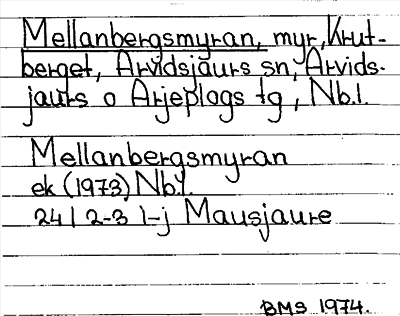 Mellanbergsmyran, myr, Krut-
berget, Arvidsjaurs sn, Arvids-
jaurs o Arjeplogs tg, Nb.l.
Mellanbergsmyran
ek (1973) Nb.l.
24 I 2-3 I-j Mausjaure
BMS 1974.